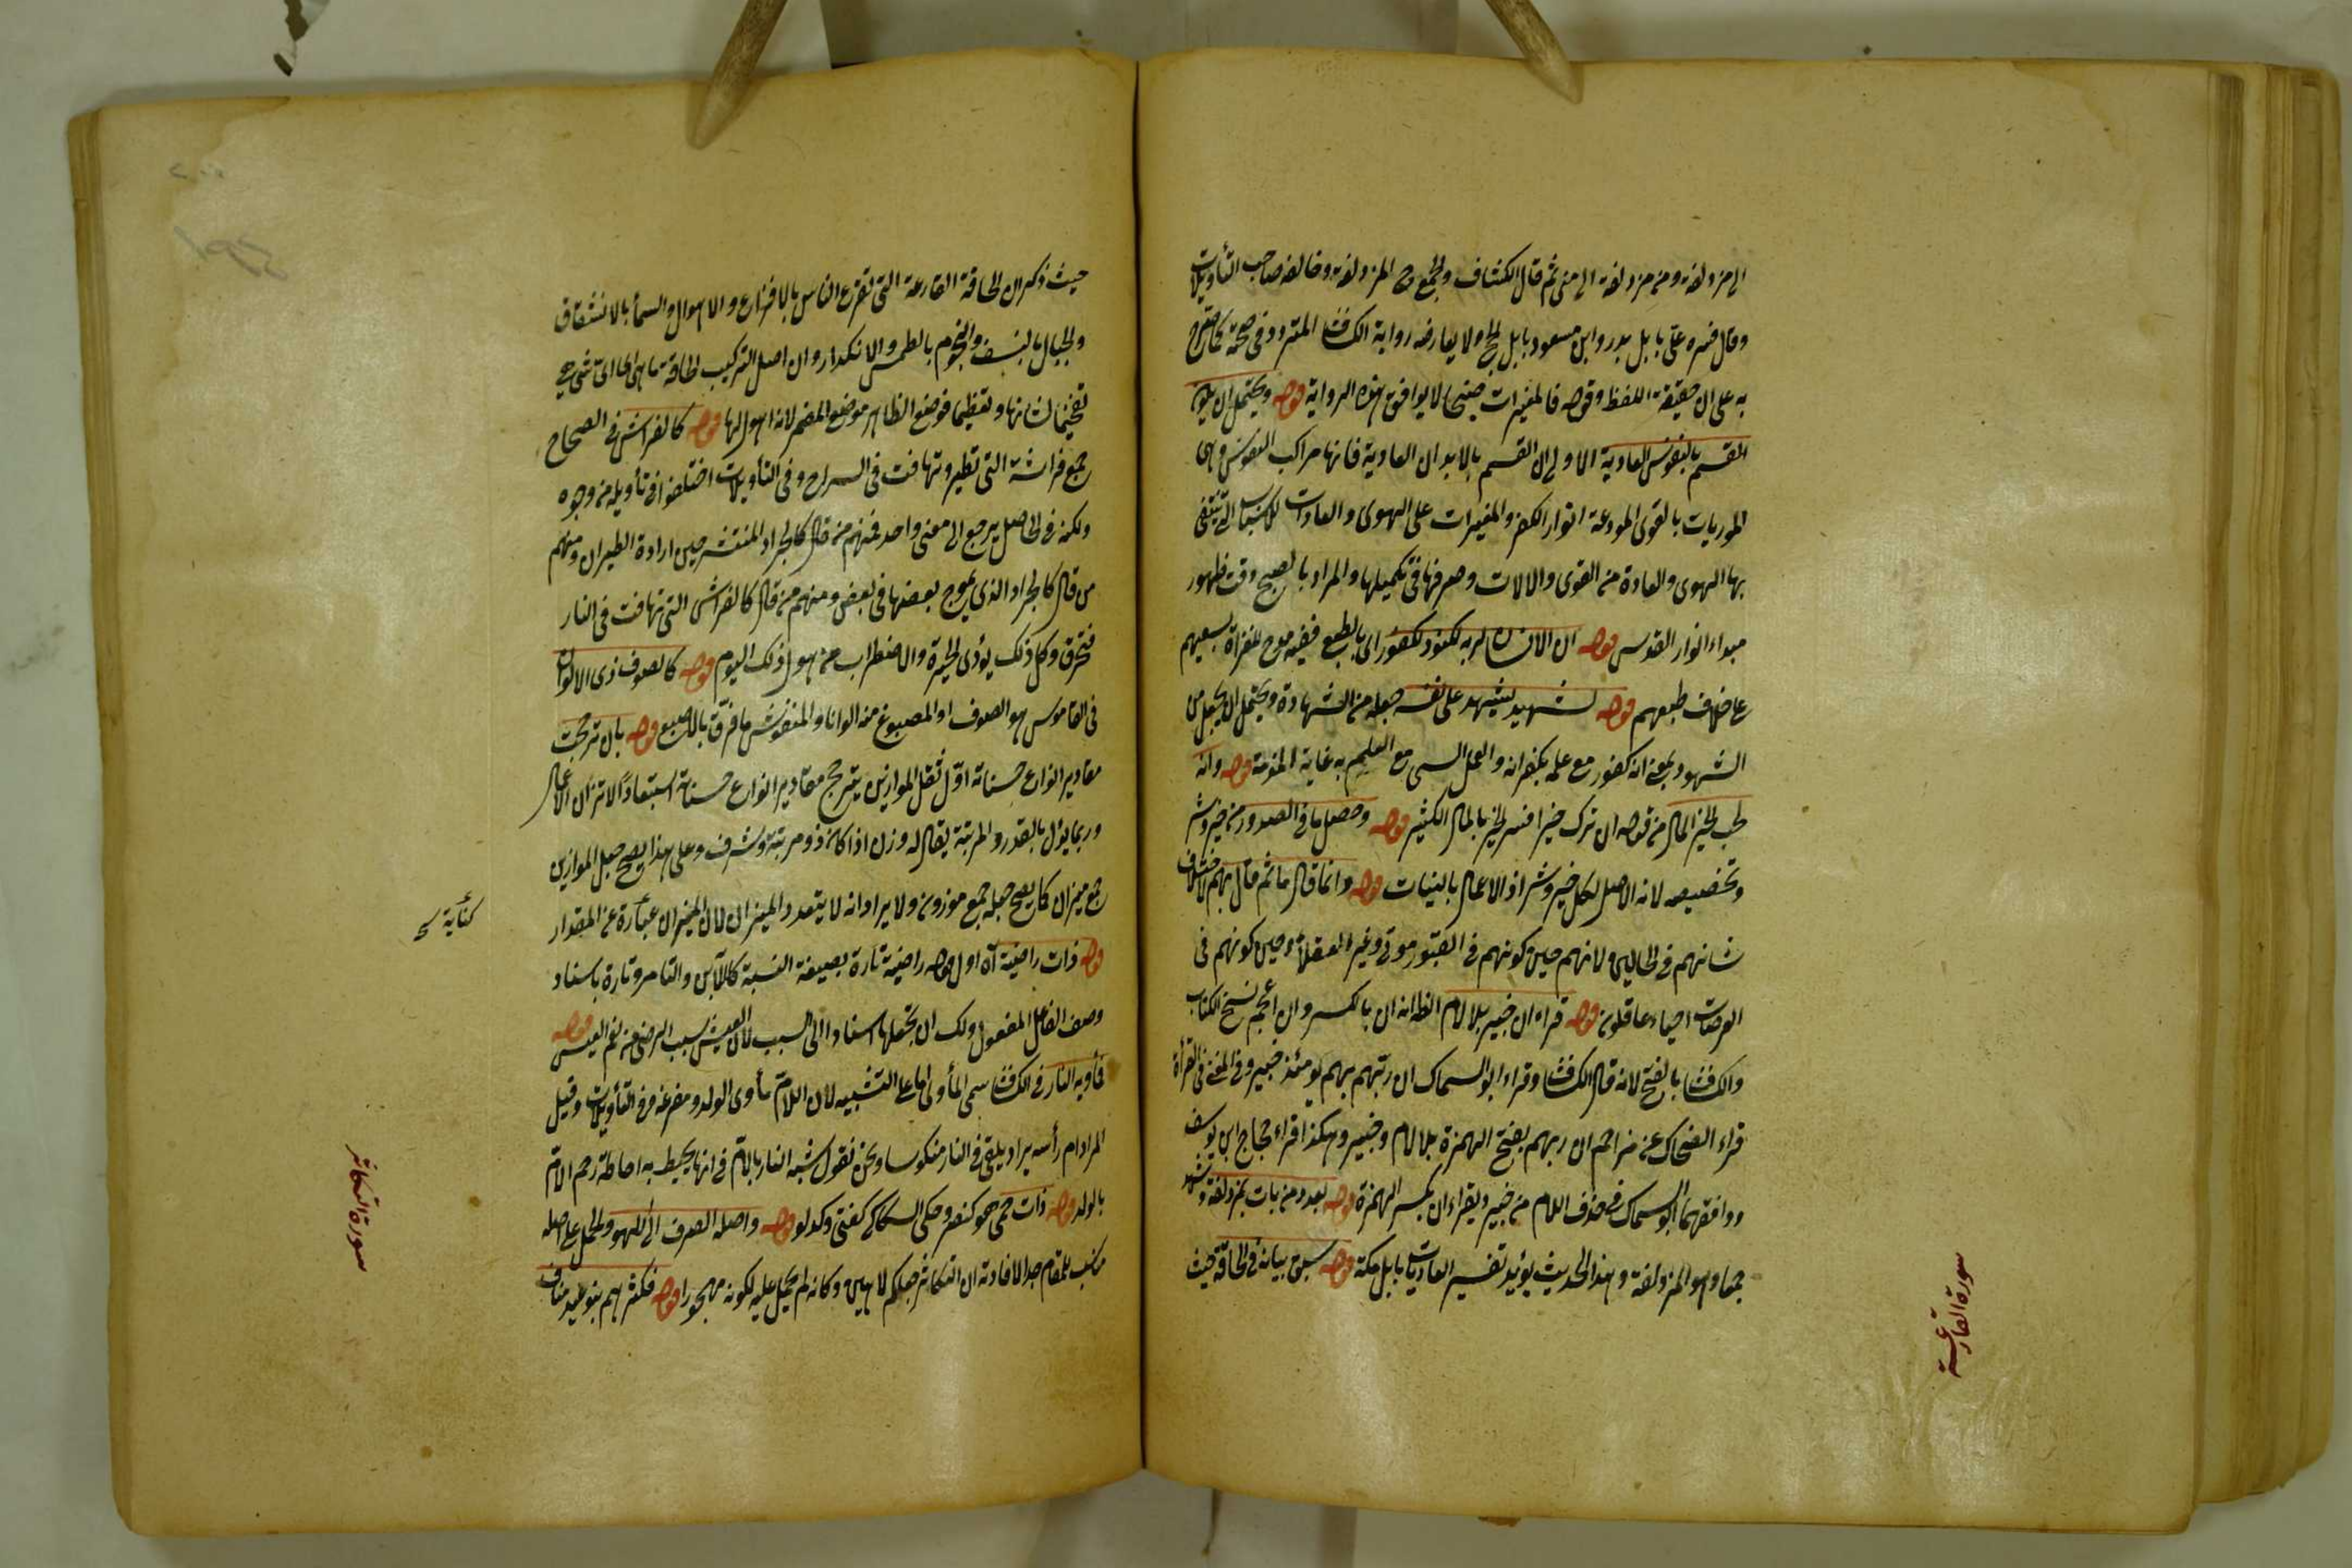 الى مزدلفة ومن مزدلفة الى منى ثم قال الكشاف والجمع هى المزدلفة وخالفه صاحب التأويلات
وقال فسره على بابل بدر وابن مسعود بابل الحج ولا يعارضه رواية الكشاف المتردد فى صحته كما صرح
به على ان حقيقة اللفظ وقوله فالمغيرات صبحا لا يوافق هذه الرواية قوله ويحتمل ان يكون
القسم بالنفوس العادية الاولى ان القسم بالابدان العادية فانها مراكب النفوس وهى
الموريات بالقوى المودعة انوار الفكر والمغيرات على الهوى والعادات التى ينتفى
بها الهوى والعادة من القوى والالات وصرفها فى تكميلها والمراد بالصبح وقت ظهور
مبداء انوار القدس قوله ان الانسان لربه لكنود لكفور اى بالطبع ففيه مدح للغزاة لسعيهم
على خلاف طبعهم قوله لشهيد يشهد على نفسه جعله من الشهادة ويحتمل ان يجعل من
الشهود بمعنى انه كفور مع علمه بكفرانه والعمل السئ مع العلم به غاية المذمة قوله وانه
لحب الخير المال من قوله ان ترك خيرا فسر الخير بالمال الكثير قوله وحصل ما فى الصدور من خير وشر
وتخصيصه لانه الاصل لكل خير وشر اذ الاعمال بالنيات قوله وانما قال ما ثم قال بهم لاختلاف
شانهم فى الحالين ولانهم حين كونهم فى القبور موتى وغير العقلاء وحين كونهم فى
العرصات احياء عاقلون قوله قراء ان خبير بلا لام الظ انه ان بالكسر وان اعجم نسخ الكتاب
والكشاف بالفتح لانه قال الكشاف وقراء ابو السماك ان ربهم بهم يومئذ خبير وفى المغنى فى القرأة
قراء الضحاك عن مزاحم ان ربهم بفتح الهمزة بلا لام وخبير وهكذا قراء حجاج ابن يوسف
ووافقهما ابو السماك فى حذف اللام من خبير ويقراء ان بكسر الهمزة قوله بعدد من بات بمزدلفة وشهد
جمعا وهو المزدلفة وهذا الحديث يؤيد تفسير العاديات بابل مكة قوله سبق بيانه فى الحاقة حيث
سورة القارعة
حيث ذكر ان الحاقة القارعة التى تقرع الناس بالافزاع والاهوال والسماء بالانشقاق
والجبال بالنسف والنجوم بالطمس والانكدار وان اصل التركيب الحاقة ما هى اى اى شئ هى
تفخيما لشانها وتعظيما فوضع الظاهر موضع المضمر لانه اهول لها قوله كالفراش فى الصحاح
جمع فراشة التى تطير وتهافت فى السراج وفى التأويلات اختلفوا فى تأويله من وجوه
ولكنه فى الحاصل يرجع الى معنى واحد فمنهم من قال كالجراد المنتشر حين ارادة الطيران ومنهم
من قال كالجراد الذى يموج بعضها فى بعض ومنهم من قال كالفراش التى تهافت فى النار
فتحرق وكل ذلك يؤدى الحيرة والاضطراب من هول ذلك اليوم قوله كالصوف ذى الالوان
فى القاموس هو الصوف او المصبوغ منه الوانا والمنفوش ما فرق بالاصبع قوله بان ترجحت
مقادير انواع حسناته اول ثقل الموازين بترجح مقادير انواع حسناته استبعادا لاتزان الاعمال
وربما يؤل بالقدر والمرتبة يقال له وزن اذا كان ذو مرتبة وشرف وعلى هذا يصح جعل الموازين
جمع ميزان كما يصح جعله جمع موزون ولا يراد انه لا يتعدد الميزان لان الميزان عبارة عن المقدار
كناية
قوله ذات راضية آه اول قوله راضية تارة بصيغة النسبة كاللابن والتامر وتارة باسناد
وصف الفاعل المفعول ولك ان تجعلها اسنادا الى السبب لان العيش سبب الرضى عنه نعم العيش قوله
فمأويه النار فى الكشاف سمى المأوى اما على التشبيه لان اللام مأوى الولد ومفزعه وفى التأويلات وقيل
المراد ام رأسه يراد يلقى فى النار منكوسا ونحن نقول شبه النار بالام فى انها يحيط به احاطة رحم الام
بالولد قوله ذات حمى هو كنصر وحكى السكاكى كفتى وكدلو قوله واصله الصرف الى اللهو والحمل على اصله
مناسب للمقام جدا لافادته ان التكاثر جعلكم لاهين وكانه لم يحمل عليه لكونه مهجورا قوله فكثرهم بنو عبد مناف
سورة التكاثر